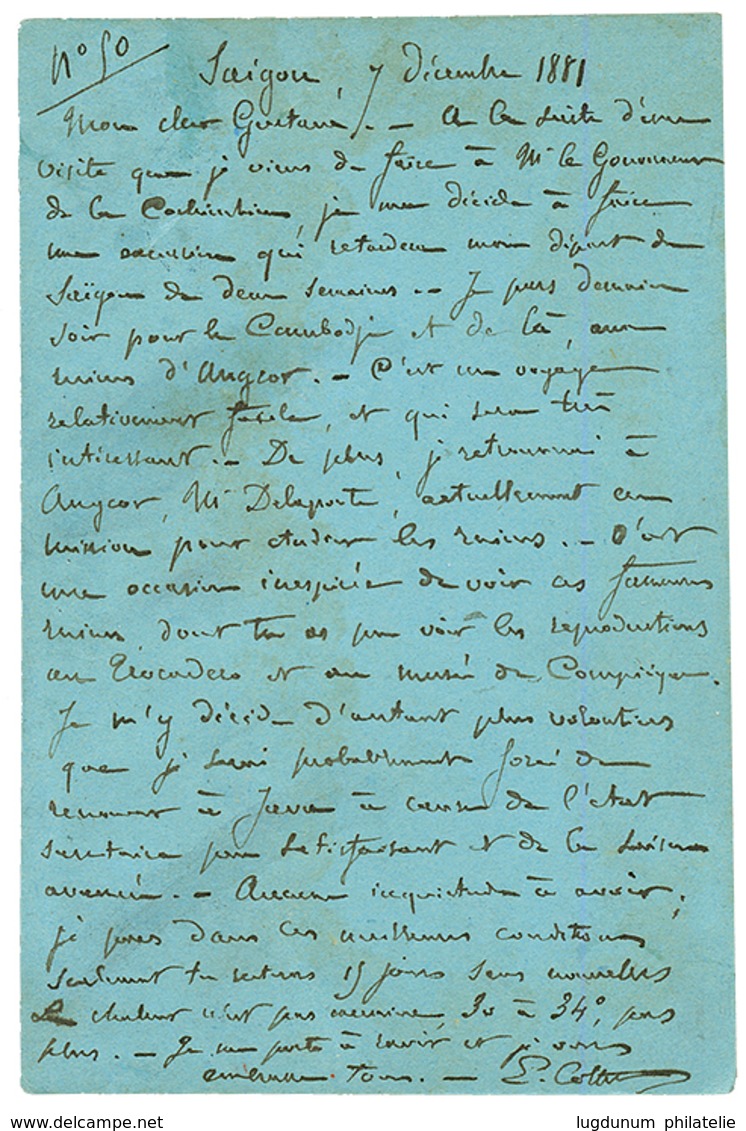 N° 50
Saïgon, 7 décembre 1881
Mon cher Gustave, — A la suite d'une
visite que je viens de faire à Mr le Gouverneur
de la Cochinchine, je me décide à faire
une excursion qui retardera mon départ de
Saïgon de deux semaines. — Je pars demain
soir pour le Cambodje et de là, aux
ruines d'Angcor. — C'est un voyage
relativement facile, et qui sera très
intéressant. — De plus, je retrouverai à
Angcor, Mr Delaporte, actuellement en
mission pour étudier les ruines. — C'est
une occasion inespérée de voir ces fameuses
ruines, dont tu as pu voir les reproductions
au Trocadero et au musée de Compiègne.
Je m'y décide d'autant plus volontiers
que je serai probablement forcé de
renoncer à Java à cause de l'état
sanitaire peu satisfaisant et de la saison
avancée. — Aucune inquiétude à avoir,
je pars dans les meilleures conditions
seulement tu resteras 15 jours sans nouvelles
La chaleur n'est pas excessive, 30 à 34°, pas
plus. — Je me porte à ravir et je vous
embrasse tous. — E. Cotteau
lugdunum philatelie